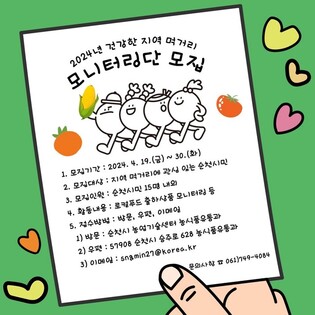 2024년 건강한 지역 먹거리
모니터링단 모집
1. 모집기간 : 2024. 4. 19.(금) ~ 30.(화)
2. 모집대상 : 지역 먹거리에 관심 있는 순천시민
3. 모집인원 : 순천시민 15명 내외
4. 활동내용 : 로컬푸드 출하상품 모니터링 등
5. 접수방법 : 방문, 우편, 이메일
1) 방문 : 순천시 농업기술센터 농식품유통과
2) 우편 : 57908 순천시 승주로 628 농식품유통과
3) 이메일 : sngmin27@korea.kr
문의사항 ☎ 061)749-4084